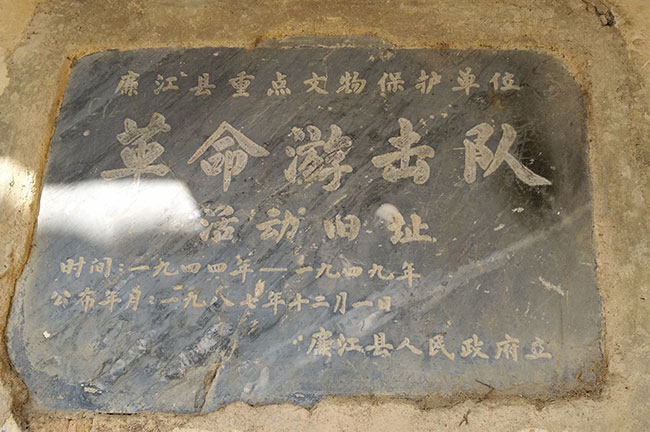 廉江县重点文物保护单位
革命游击队
活动旧址
时间:一九四四年—一九四九年
公布年月:一九八七年十二月一日
廉江县人民政府立